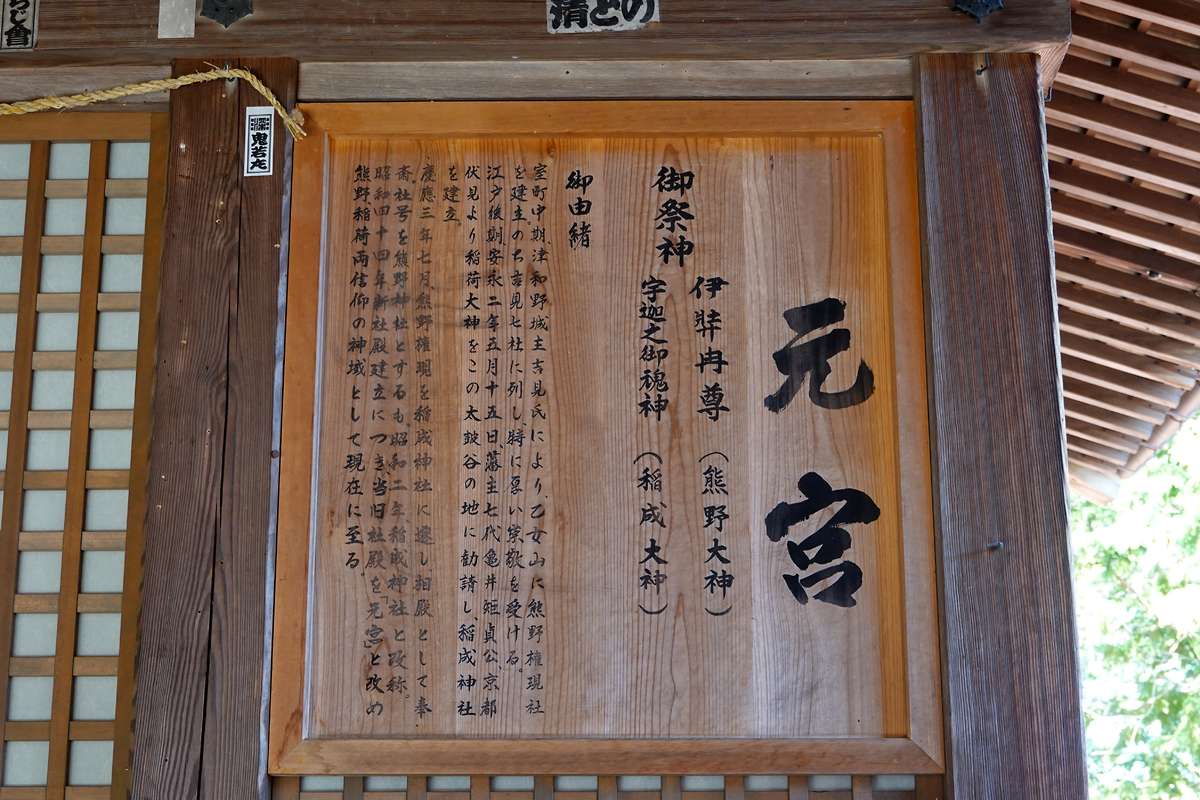 元宮
御祭神
伊弉冉尊（熊野大神）
宇迦之御魂神（稲成大神）
御由緒
室町中期、津和野城主吉見氏により、乙女山に熊野権現社
を建立。のち吉見七社に列し、時に厚い崇敬を受ける。
江戸後期、安永二年五月十五日、藩主七代亀井矩貞公、京都
伏見より稲荷大神をこの太皷谷の地に勧請し、稲成神社
を建立。
慶應三年七月、熊野権現を稲成神社に遷し相殿として奉
斎。社号を熊野神社とするも、昭和二年、稲成神社と改称。
昭和四十四年新社殿建立につき当旧社殿を「元宮」と改め
熊野、稲荷両信仰の神域として現在に至る。
鬼若丸